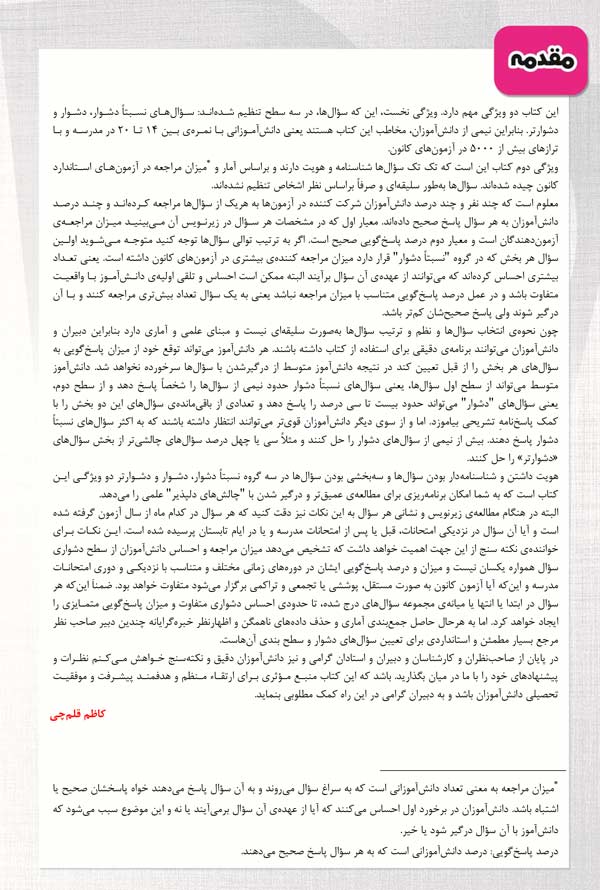 مقدمه
این کتاب دو ویژگی مهم دارد. ویژگی نخست، این که سؤال‌ها، در سه سطح تنظیم شده‌اند: سؤال‌های نسبتاً دشوار، دشوار و
دشوارتر. بنابراین نیمی از دانش‌آموزان، مخاطب این کتاب هستند یعنی دانش‌آموزانی با نمره‌ی بین ۱۴ تا ۲۰ در مدرسه و با
ترازهای بیش از ۵۰۰۰ در آزمون‌های کانون.
ویژگی دوم کتاب این است که تک تک سؤال‌ها شناسنامه و هویت دارند و براساس آمار و *میزان مراجعه در آزمون‌های استاندارد
کانون چیده شده‌اند. سؤال‌ها به‌طور سلیقه‌ای و صرفاً براساس نظر اشخاص تنظیم نشده‌اند.
معلوم است که چند نفر و چند درصد دانش‌آموزان شرکت کننده در آزمون‌ها به هریک از سؤال‌ها مراجعه کرده‌اند و چند درصد
دانش‌آموزان به هر سؤال پاسخ صحیح داده‌اند. معیار اول که در مشخصات هر سؤال در زیرنویس آن می‌بینید میزان مراجعه‌ی
آزمون‌دهندگان است و معیار دوم درصد پاسخ‌گویی صحیح است. اگر به ترتیب توالی سؤال‌ها توجه کنید متوجه می‌شوید اولین
سؤال هر بخش که در گروه "نسبتاً دشوار" قرار دارد میزان مراجعه کننده‌ی بیشتری در آزمون‌های کانون داشته است. یعنی تعداد
بیشتری احساس کرده‌اند که می‌توانند از عهده‌ی آن سؤال برآیند البته ممکن است احساس و تلقی اولیه‌ی دانش‌آموز با واقعیت
متفاوت باشد و در عمل درصد پاسخ‌گویی متناسب با میزان مراجعه نباشد یعنی به یک سؤال تعداد بیش‌تری مراجعه کنند و با آن
درگیر شوند ولی پاسخ صحیح‌شان کم‌تر باشد.
چون نحوه‌ی انتخاب سؤال‌ها و نظم و ترتیب سؤال‌ها به‌صورت سلیقه‌ای نیست و مبنای علمی و آماری دارد بنابراین دبیران و
دانش‌آموزان می‌توانند برنامه‌ی دقیقی برای استفاده از کتاب داشته باشند. هر دانش‌آموز می‌تواند توقع خود از میزان پاسخ‌گویی به
سؤال‌های هر بخش را از قبل تعیین کند در نتیجه دانش‌آموز متوسط از درگیرشدن با سؤال‌ها سرخورده نخواهد شد. دانش‌آموز
متوسط می‌تواند از سطح اول سؤال‌ها، یعنی سؤال‌های نسبتاً دشوار حدود نیمی از سؤال‌ها را شخصاً پاسخ دهد و از سطح دوم،
یعنی سؤال‌های "دشوار" می‌تواند حدود بیست تا سی درصد را پاسخ دهد و تعدادی از باقی‌مانده‌ی سؤال‌های این دو بخش را با
کمک پاسخ‌نامه‌ تشریحی بیاموزد. اما و از سوی دیگر دانش‌آموزان قوی‌تر می‌توانند انتظار داشته باشند که به اکثر سؤال‌های نسبتاً
دشوار پاسخ دهند. بیش از نیمی از سؤال‌های دشوار را حل کنند و مثلاً سی یا چهل درصد سؤال‌های چالشی‌تر از بخش سؤال‌های
«دشوارتر» را حل کنند.
هویت داشتن و شناسنامه‌دار بودن سؤال‌ها و سه‌بخشی بودن سؤال‌ها در سه گروه نسبتاً دشوار، دشوار و دشوارتر دو ویژگی این
کتاب است که به شما امکان برنامه‌ریزی برای مطالعه‌ی عمیق‌تر و درگیر شدن با "چالش‌های دلپذیر" علمی را می‌دهد.
البته در هنگام مطالعه‌ی زیرنویس و نشانی هر سؤال به این نکات نیز دقت کنید که هر سؤال در کدام ماه از سال آزمون گرفته شده
است و آیا آن سؤال در نزدیکی امتحانات، قبل یا پس از امتحانات مدرسه و یا در ایام تابستان پرسیده شده است. این نکات برای
خواننده‌ی نکته سنج از این جهت اهمیت خواهد داشت که تشخیص می‌دهد میزان مراجعه و احساس دانش‌آموزان از سطح دشواری
سؤال همواره یکسان نیست و میزان و درصد پاسخ‌گویی ایشان در دوره‌های زمانی مختلف و متناسب با نزدیکی و دوری امتحانات
مدرسه و این‌که آیا آزمون کانون به صورت مستقل، پوششی یا تجمعی و تراکمی برگزار می‌شود متفاوت خواهد بود. ضمناً این‌که هر
سؤال در ابتدا یا انتها یا میانه‌ی مجموعه سؤال‌های درج شده، تا حدودی احساس دشواری متفاوت و میزان پاسخ‌گویی متمایزی را
ایجاد خواهد کرد. اما به هرحال حاصل جمع‌بندی آماری و حذف داده‌های ناهمگن و اظهارنظر خبره‌گرایانه چندین دبیر صاحب نظر
مرجع بسیار مطمئن و استانداردی برای تعیین سؤال‌های دشوار و سطح بندی آن‌هاست.
در پایان از صاحب‌نظران و کارشناسان و دبیران و استادان گرامی و نیز دانش‌آموزان دقیق و نکته‌سنج خواهش می‌کنم نظرات و
پیشنهادهای خود را با ما در میان بگذارید. باشد که این کتاب منبع مؤثری برای ارتقاء منظم و هدفمند پیشرفت و موفقیت
تحصیلی دانش‌آموزان باشد و به دبیران گرامی در این راه کمک مطلوبی بنماید.
کاظم قلم‌چی
*میزان مراجعه به معنی تعداد دانش‌آموزانی است که به سراغ سؤال می‌روند و به آن سؤال پاسخ می‌دهند خواه پاسخشان صحیح یا
اشتباه باشد. دانش‌آموزان در برخورد اول احساس می‌کنند که آیا از عهده‌ی آن سؤال برمی‌آیند یا نه و این موضوع سبب می‌شود که
دانش‌آموز با آن سؤال درگیر شود یا خیر.
درصد پاسخ‌گویی: درصد دانش‌آموزانی است که به هر سؤال پاسخ صحیح می‌دهند.